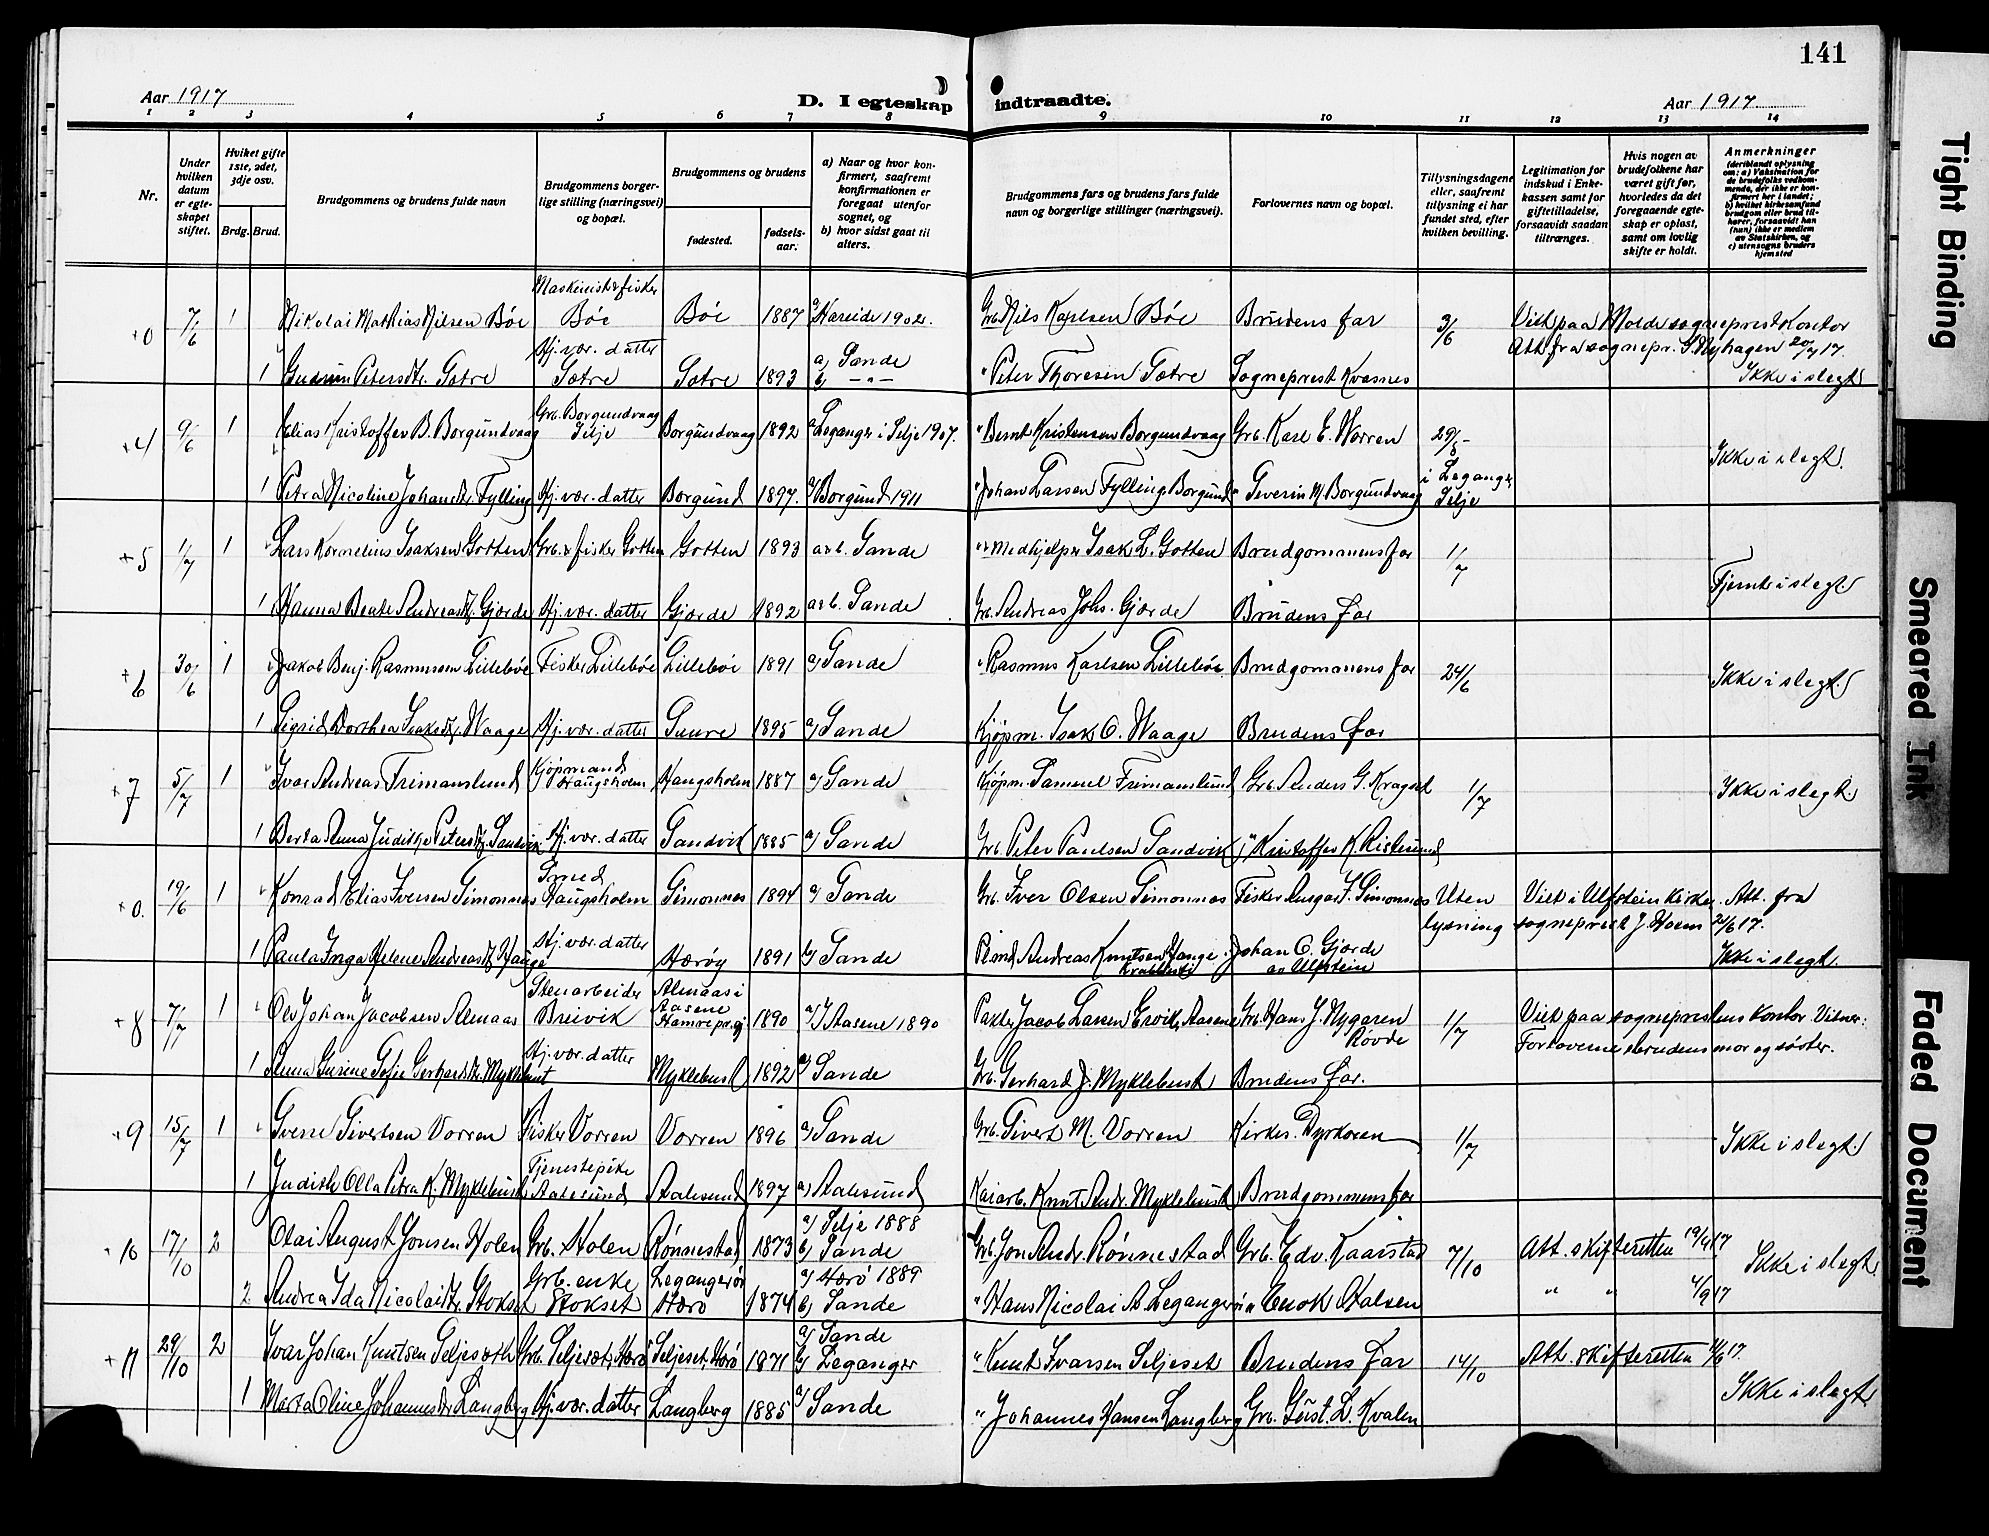 141
Aar 1917
D. I egteskap indtraadte.
Aar 1917
1 2 3 4 5 6 7 8 9 10 11 12 13 14
Nr.
Under hvilken datum er egteskapet stiftet.
Hviket gifte 1ste, 2det, 3dje osv.
Brdg. Brud.
Brudgommens og brudens fulde navn
Brudgommens borgerlige stilling (næringsvei) og bopæl.
Brudgommens og brudens
fødested.
fødselsaar.
a) Naar og hvor konfirmert, saafremt konfirmationen er foregaat utenfor sognet, og
b) hvor sidst gaat til alters.
Brudgommens fars og brudens fars fulde navn og borgerlige stillinger (næringsvei).
Forlovernes navn og bopæl.
Tillysningsdagene eller, saafremt tillysning ei har fundet sted, efter hvilken bevilling.
Legitimation for indskud i Enkekassen samt for giftetilladelse, forsaavidt saadan tiltrænges.
Hvis nogen av brudefolkene har været gift før, hvorledes da det foregaaende egteskap er opløst, samt om lovlig skifte er holdt.
Anmerkninger
(deriblandt oplysning om: a) Vaksination for de brudefolks vedkommende, der ikke er konfirmert her i landet; b) hvilket kirkesamfund brudgom eller brud tilhører, forsaavidt han (hun) ikke er medlem av Statskirken, og c) utensogns bruders hjemsted
+0 7/6 1 Nikolai Mathias Nilsen Bøe Maskinist & fisker Bøe Bøe 1887 a) Hareide 1902. Grb. Nils Karlsen Bøe Brudens far 3/6 Viet paa Molde sogneprestkontor
1 Gudrun Petersdtr. Sætre Hj. vær. datter Sætre Sætre 1893 a) Sande b) — " — " Peter Thoresen Sætre Sogneprest Kvasnes Att. fra sognepr. S. Nyhagen 20/7 17. Ikke i slegt
+4 9/6 1 Elias Kristoffer B. Borgundvaag Grb. Borgundvaag Selje Borgundvaag 1892 a) Leganger i Selje 1907. " Bernt Kristensen Borgundvaag Grb. Karl E. Worren 29/5 - Ikke i slegt.
1 Petra Nicoline Johansdtr. Fylling Hj. vær. datter Borgund 1897. a) Borgund 1911 " Johan Larsen Fylling Borgund " Severin M Borgundvaag i Leganger Selje
+5 1/7 1 Lars Kornelius Isaksen Gotten Grb. & fisker Gotten Gotten 1893 a & b. Sande " Medhjelper Isak L. Gotten Brudgommens far 1/7 Fjernt i slegt.
1 Hanna Beate Andreasdtr. Gjørde Hj. vær. datter Gjørde 1892 a & b. Sande Grb. Andreas Johs. Gjørde Brudens far
+6 30/6 1 Jakob Benj. Rasmussen Lillebøe Fisker Lillebøe Lillebøe 1891 a) Sande " Rasmus Karlsen Lillebøe Brudgommens far 24/6 Ikke i slegt.
1 Sigrid Dorthea Isaksdtr. Waage Hj. vær. datter Gurre 1895 a) Sande Kjøpm. Isak O. Waage Brudens far
+7 5/7 1 Ivar Andreas Frimanslund Kjøpmand Haugsholm Haugsholm 1887 a) Sande Kjøpm. Samuel Frimanslund Grb. Anders G. Kragset 1/7 Ikke i slegt.
1 Berta Anna Judithe Petersdtr. Sandvik Hj. vær. datter Sandvik 1885 a) Sande Grb. Peter Paulsen Sandvik " Kristoffer K Ristesund
+0. 19/6 1 Konrad Elias Iversen Simonnes Smed Haugsholm Simonnes 1894 a) Sande Grb. Iver Olsen Simonnes Fisker Ansgar I. Simonnes Uten lysning Viet i Ulfstein kirke. Att. fra sogneprest J. Hoem 24/6 17.
1 Paula Inga Helene Andreasdtr. Hauge Hj. vær. datter Herøy 1891 a) Sande Pens. Andreas Knutsen Hauge Johan O. Gjørde av Ulfstein Ikke i slegt.
+8 7/7 1 Ole Johan Jacobsen Almaas Stenarbeider Breivik Almaas i Aasene Hamre prgj 1890 a) Aasene 1890 Jacob Larsen Aasene Grb. Hans J. Nygaren Rovde 1/7 Viet paa sogneprestens kontor. Vitner:
1 Anna Gurine Sofie Gerhardsdtr. Myklebust Hj. vær. datter Myklebust 1892 a) Sande Grb. Gerhard J. Myklebust Brudens far. Forloverne & brudens mor og søster.
+9 15/7 1 Sverre Sivertsen Vorren Fisker Vorren Vorren 1896 a) Sande Grb. Sivert M. Vorren Kirkes. Dyrkoren 1/7 Ikke i slegt
1 Judith Olla Petra K. Myklebust Tjenestepike Aalesund Aalesund 1897 a) Aalesund Kaiarb. Knut Andr. Myklebust Brudgommens far
+10 17/10 2 Olai August Jonsen Holen Grb. Holen Rønnestad 1873 a) Selje 1888 b) Sande Grb. Jon Andr. Rønnestad Grb. Edv. Kaarstad 7/10 Att. skifteretten 19/9 17 Ikke i slegt
2 Andrea Ida Nicolaidtr. Stokset Grb. enke Stokset Legangerør Herø 1874 a) Herø 1889 b) Sande " Hans Nicolai A. Legangerør " Enok Stalsen " " 4/9 17
+11 29/10 2 Ivar Johan Knutsen Seljeseth Grb. Seljeset, Herø Seljeset, Herø 1871 a) Sande b) Leganger " Knut Ivarsen Seljeset Brudens far 14/10 Att. skifteretten 14/6 17. Ikke i slegt
1 Marta Oline Johannesdtr. Langberg Hj. vær. datter Langberg 1885 a) Sande " Johannes Hansen Langberg Grb. Gust. L. Kvalen
Tight Binding
Smeared Ink
Faded Document